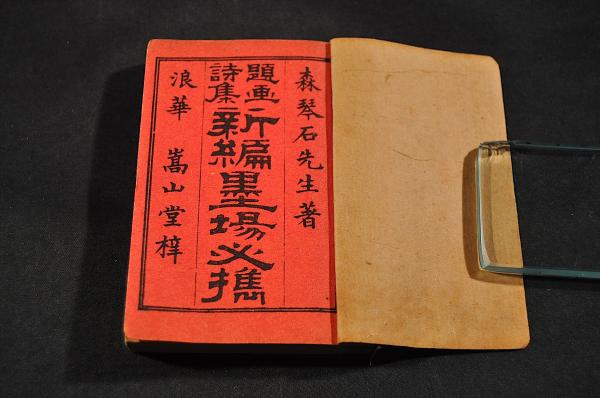 森琴石先生著
題画詩集
新編墨場必携
浪華 嵩山堂梓